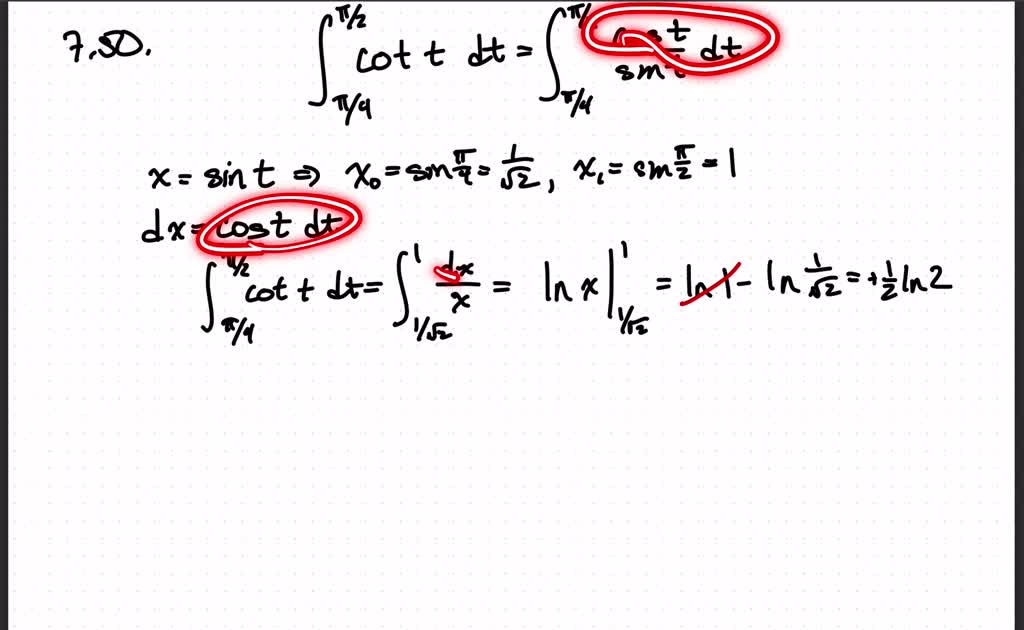 7.50. ∫_{π/4}^{π/2} cot t dt = ∫_{π/4}^{π/} cos t / sin t dt
x = sin t ⇒ x₀ = sin π/4 = 1/√2, x₁ = sin π/2 = 1
dx = cos t dt
∫_{π/4}^{π/2} cot t dt = ∫_{1/√2}^{1} dx/x = ln x |_{1/√2}^{1} = ln 1 - ln 1/√2 = +1/2 ln 2